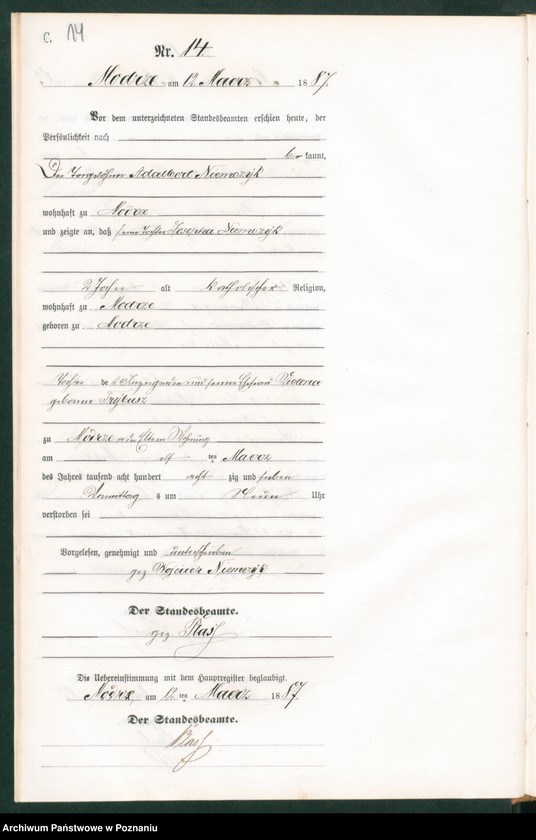 C. 14
Nr. 14
Modrze am 12 Maerz 1887.
Vor dem unterzeichneten Standesbeamten erschien heute, der
Persönlichkeit nach
be kannt,
Der Adalbert Niemczyk
wohnhaft zu Modrze
und zeigte an, daß seine Tochter Josepha Niemczyk
2 Jahre alt katholischer Religion,
wohnhaft zu Modrze
geboren zu Modrze
Tochter des Anzeigenden und seiner Ehefrau
geborene
zu Modrze in der Eltern Wohnung
am elf ten Maerz
des Jahres tausend acht hundert acht zig und sieben
Vormittag s um Neun Uhr
verstorben sei
Vorgelesen, genehmigt und unterschrieben
gez. Niemczyk
Der Standesbeamte.
gez.
Die Uebereinstimmung mit dem Hauptregister beglaubigt.
Modrze, am 12 ten Maerz 1887.
Der Standesbeamte.
Archiwum Państwowe w Poznaniu